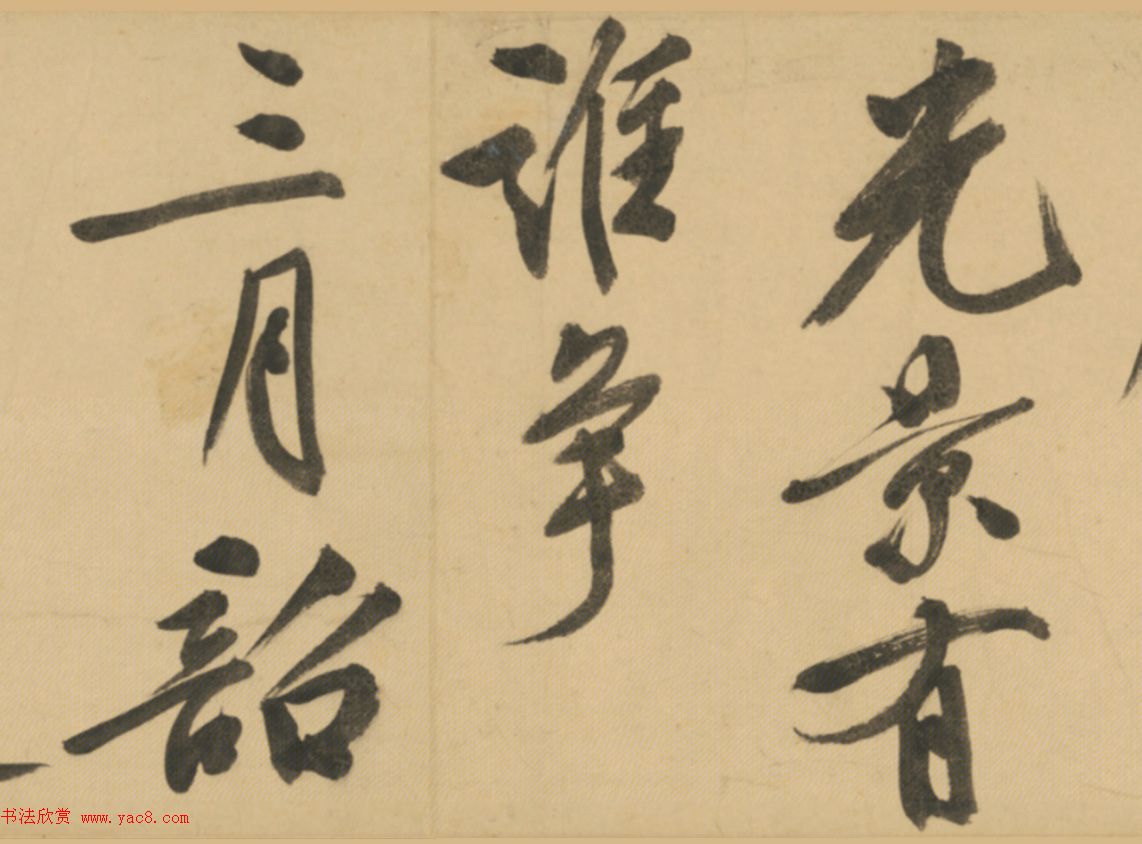 光景有
谁争
三月韶
书法欣赏 www.yac8.com